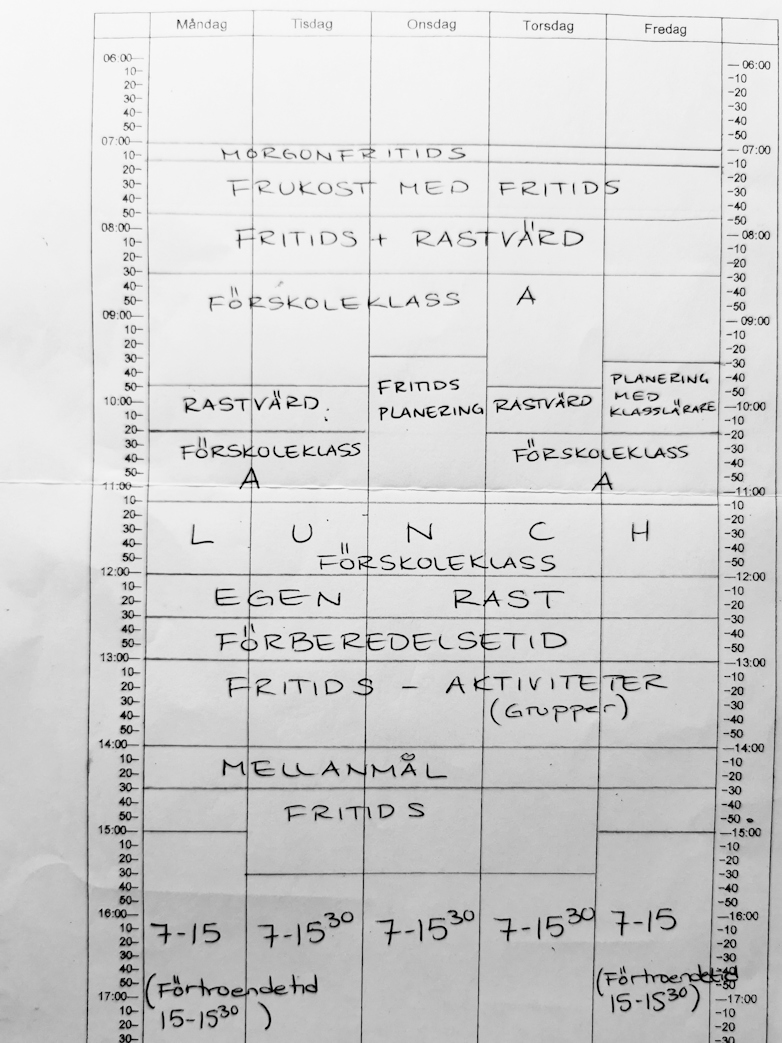 Måndag Tisdag Onsdag Torsdag Fredag
06:00 06:00
10 10
20 20
30 30
40 40
50 50
07:00 07:00
10 MORGONFRITIDS 10
20 20
30 FRUKOST MED FRITIDS 30
40 40
50 50
08:00 08:00
10 FRITIDS + RASTVÄRD 10
20 20
30 30
40 40
50 FÖRSKOLEKLASS A 50
09:00 09:00
10 10
20 20
30 30
40 PLANERING 40
50 FRITIDS MED 50
10:00 RASTVÄRD. PLANERING RASTVÄRD KLASSLÄRARE 10:00
10 10
20 20
30 FÖRSKOLEKLASS FÖRSKOLEKLASS 30
40 40
50 A A 50
11:00 11:00
10 10
20 20
30 L U N C H 30
40 40
50 FÖRSKOLEKLASS 50
12:00 12:00
10 10
20 EGEN RAST 20
30 30
40 FÖRBEREDELSETID 40
50 50
13:00 13:00
10 10
20 FRITIDS - AKTIVITETER 20
30 30
40 (Grupper) 40
50 50
14:00 14:00
10 10
20 MELLANMÅL 20
30 30
40 FRITIDS 40
50 50
15:00 15:00
10 10
20 20
30 30
40 40
50 50
16:00 16:00
10 7-15 7-15³⁰ 7-15³⁰ 7-15³⁰ 7-15 10
20 20
30 30
40 40
50 (Förtroendetid (Förtroendetid 50
17:00 17:00
10 15-15³⁰ ) 15-15³⁰) 10
20 20
30 30